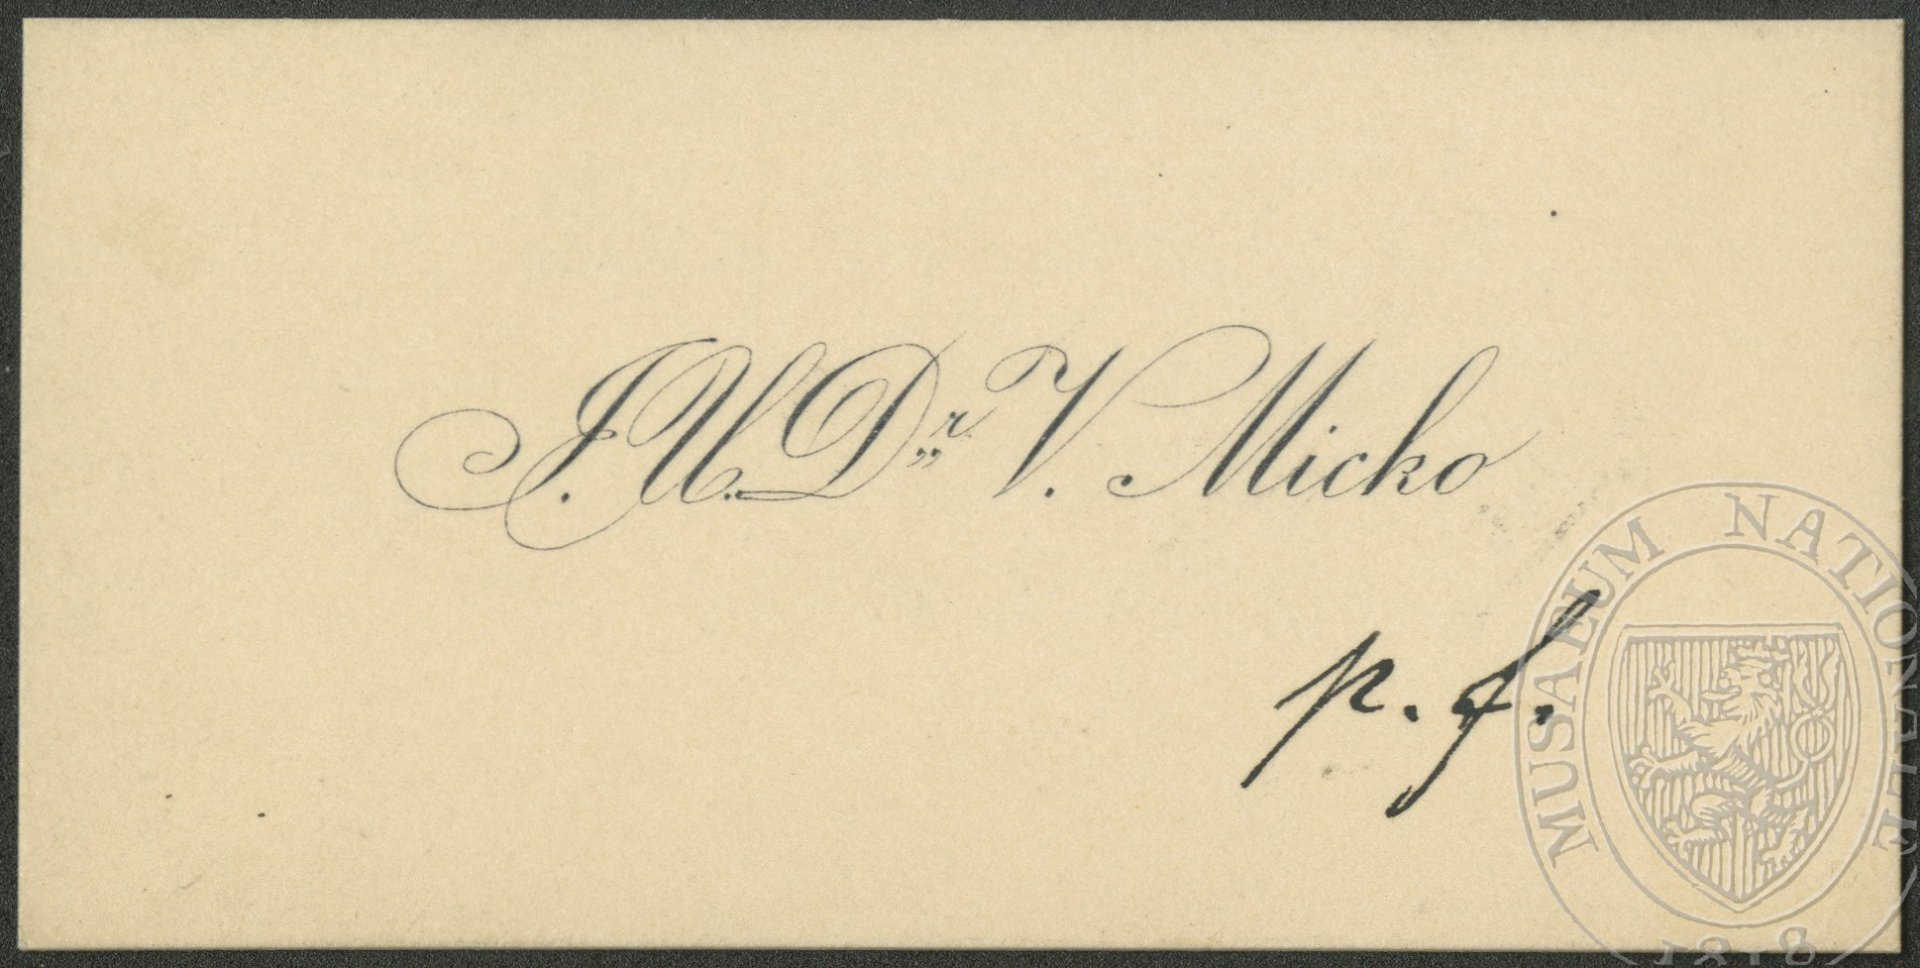 J.U.Dr. V. Micko
p. f.
MUSAEUM NATIONALE
1818